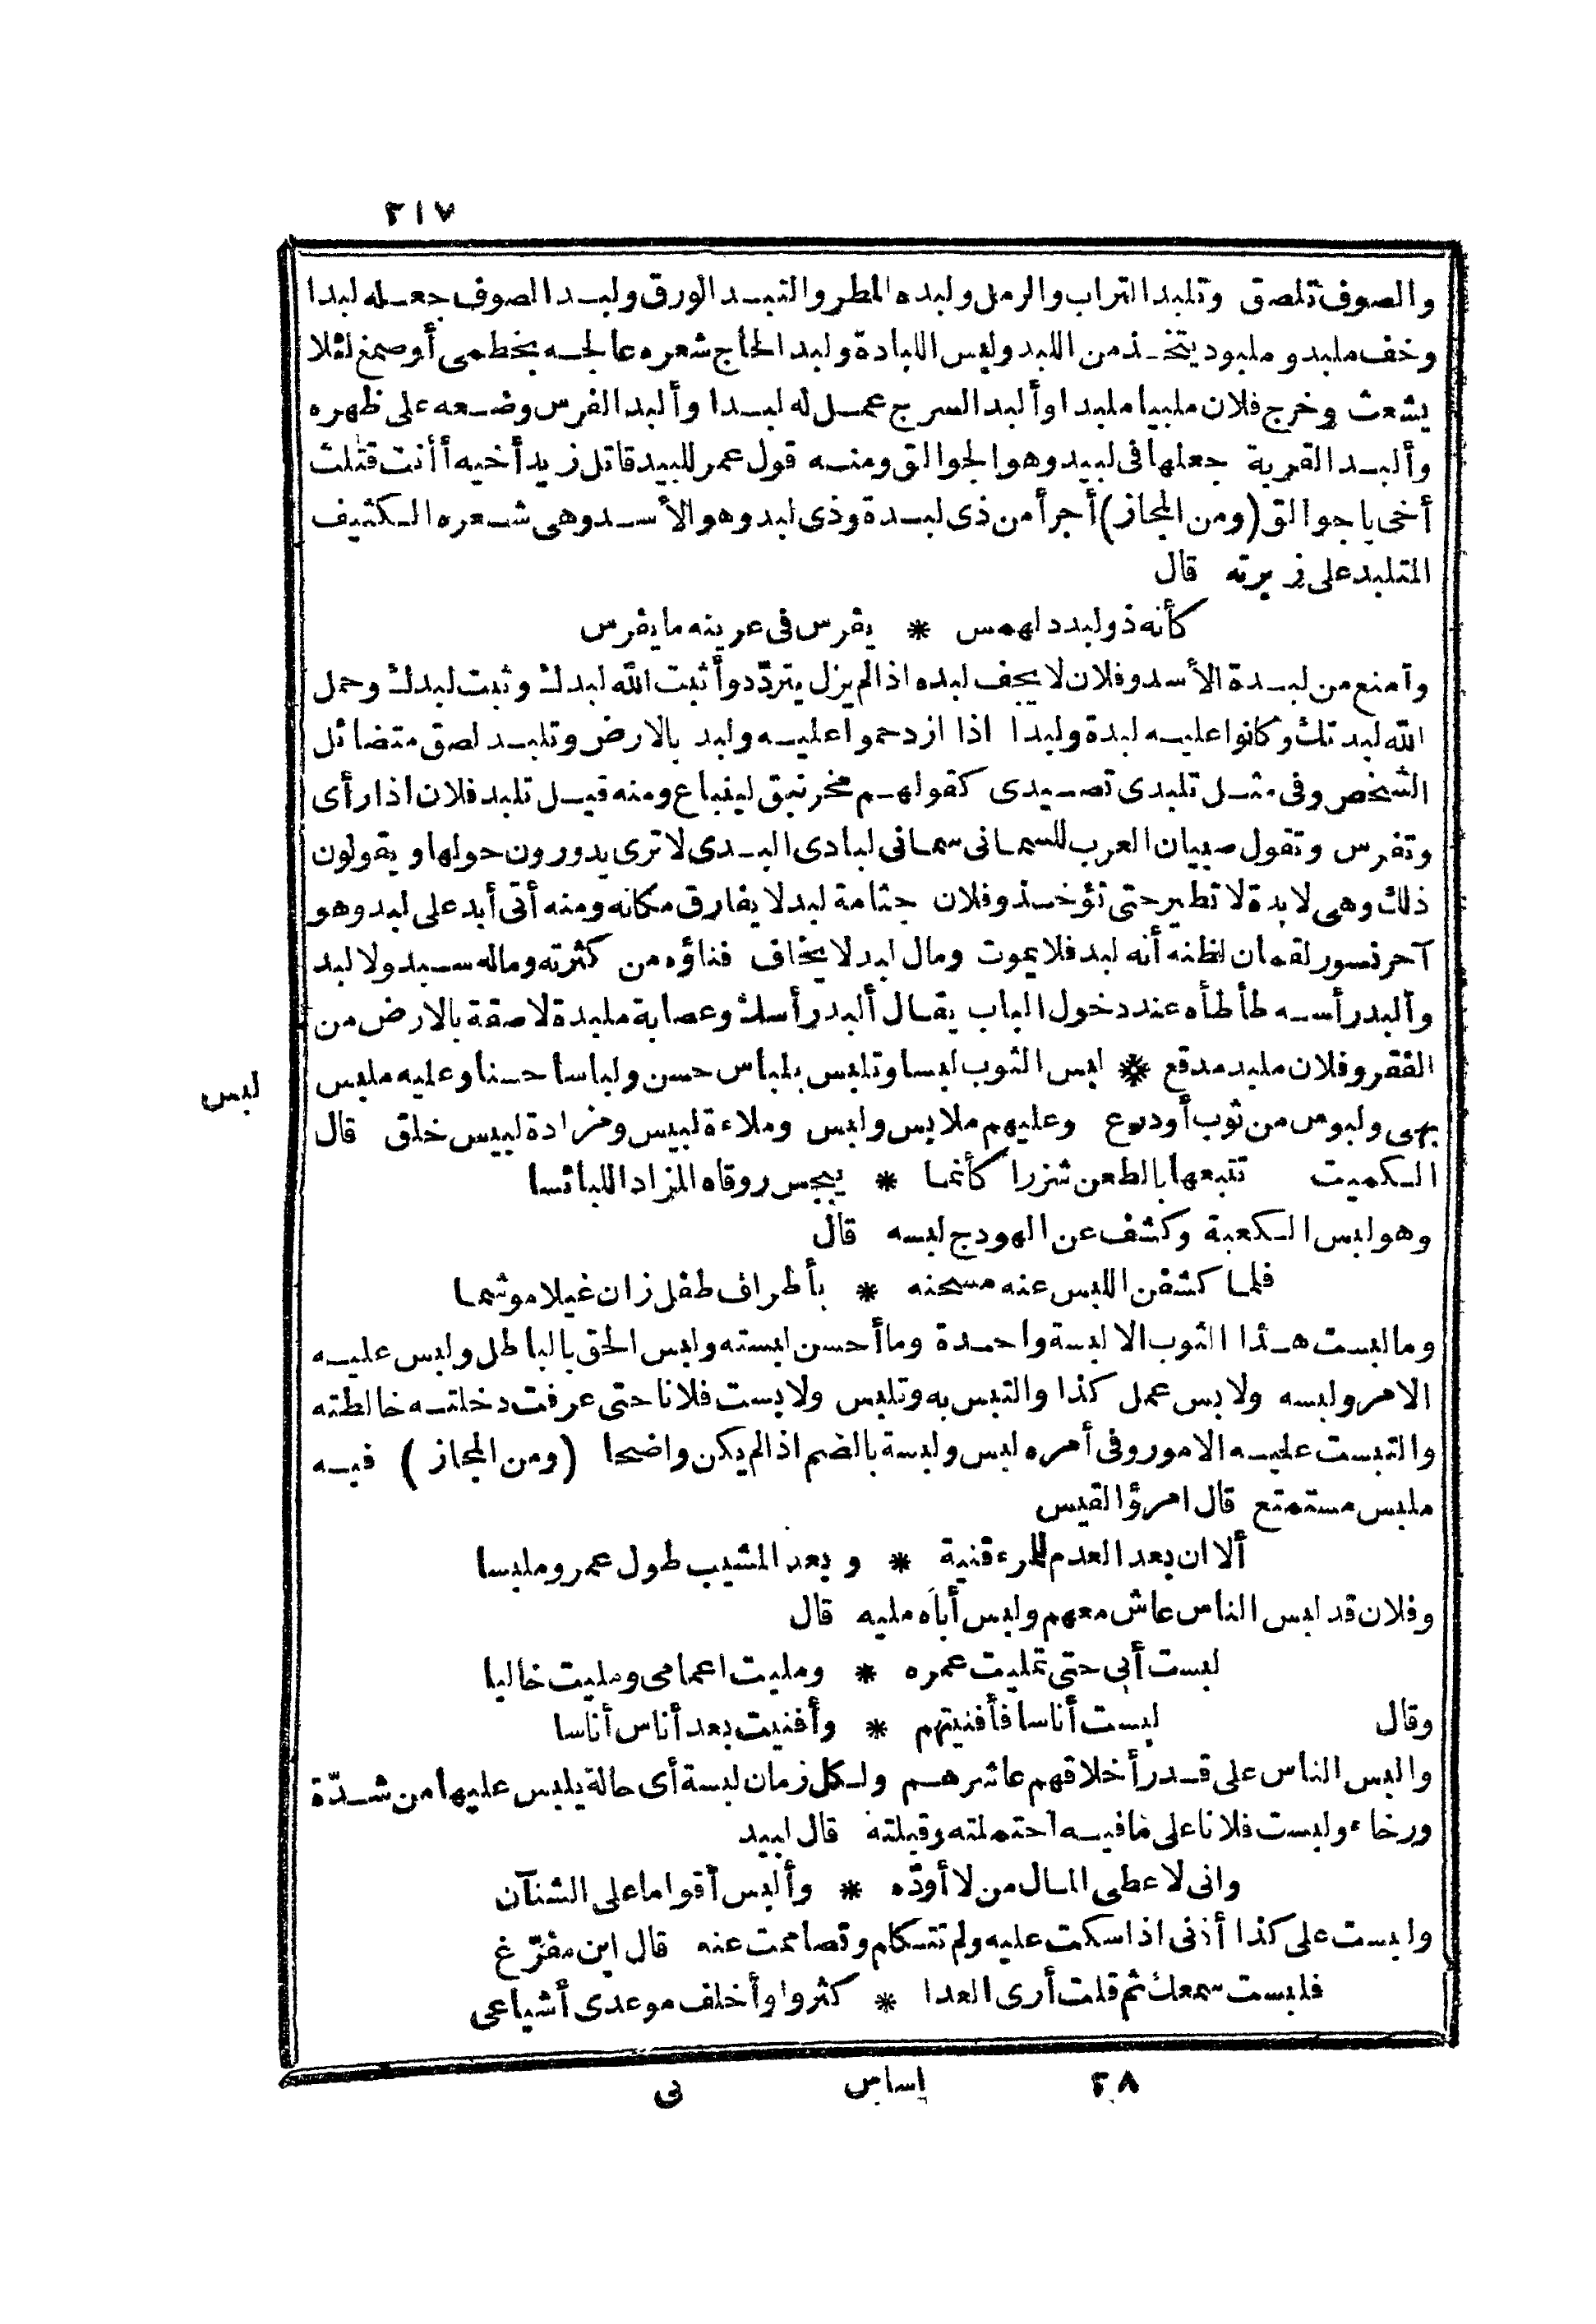 ٢١٧
والصوف تلصق وتلبد التراب والرمل ولبده المطر والتبد الورق ولبد الصوف جعله لبدا
وخف ملبد وملبود يتخذ من اللبد ولبس اللبادة ولبد الحاج شعره عالجه بخطمى أو صمغ لئلا
يشعث وخرج فلان ملبيا ملبدا وألبد السرج عمل له لبدا وألبد الفرس وضعه على ظهره
وألبد القربة جعلها فى لبيد وهو الجوالق ومنه قول عمر للبيد قاتل زيد أخيه أأنت قتلت
أخى يا جوالق (ومن المجاز) أجرأ من ذى لبدة وذى لبد وهو الأسد وهى شعره الكثيف
المتلبد على زبرته قال
كأنه ذو لبد دلهمس * يفرس فى عرينه ما يفرس
وأمنع من لبدة الأسد وفلان لا يجف لبده اذا لم يزل يتردّد وأثبت الله لبدك وثبت لبدك وحمل
الله لبدتك وكانوا عليه لبدة ولبدا اذا ازدحموا عليه ولبد بالارض وتلبد لصق متضائل
الشخص وفى مثل تلبدى تصيدى كقولهم مخرنبق لينباع ومنه قيل تلبد فلان اذا رأى
وتفرس وتقول صبيان العرب للسمانى سمانى لبادى البدى لا ترى يدورون حولها ويقولون
ذلك وهى لابدة لا تطير حتى تؤخذ وفلان جثامة لبد لا يفارق مكانه ومنه أتى أبد على لبد وهو
آخر نسور لقمان لظنه أنه لبد فلا يموت ومال لبد لا يخاف فناؤه من كثرته وماله سبد ولا لبد
وألبد رأسه طأطأه عند دخول الباب يقال ألبد رأسك وعصابة ملبدة لاصقة بالارض من
الفقر وفلان ملبد مدقع * لبس الثوب لبسا وتلبس بلباس حسن ولباسا حسنا وعليه ملبس
لبس
بهى ولبوس من ثوب أو درع وعليهم ملابس ولبس وملاءة لبيس ومزادة لبيس خلق قال
الكميت تتبعها بالطعن شزرا كأنما * يبجس روقاه المزاد اللبائسا
وهو لبس الكعبة وكشف عن الهودج لبسه قال
فلما كشفن اللبس عنه مسحنه * بأطراف طفل زان غيلا موشما
وما لبست هذا الثوب الا لبسة واحدة وما أحسن لبسته ولبس الحق بالباطل ولبس عليه
الامر ولبسه ولابس عمل كذا والتبس به وتلبس ولابست فلانا حتى عرفت دخلته خالطته
والتبست عليه الامور وفى أمره لبس ولبسة بالضم اذا لم يكن واضحا (ومن المجاز) فيه
ملبس مستمتع قال امرؤ القيس
ألا ان بعد العدم للمرء قنية * وبعد المشيب طول عمر وملبسا
وفلان قد لبس الناس عاش معهم ولبس أباه مليه قال
لبست أبى حتى تمليت عمره * ومليت اعمامى ومليت خاليا
وقال لبست أناسا فأفنيتهم * وأفنيت بعد أناس أناسا
والبس الناس على قدر أخلاقهم عاشرهم ولكل زمان لبسة أى حالة يلبس عليها من شدّة
ورخاء ولبست فلانا على ما فيه احتملته وقبلته قال لبيد
وانى لاعطى المال من لا أودّه * وألبس أقواما على الشنآن
ولبست على كذا أذنى اذا سكت عليه ولم تتكلم وتصاممت عنه قال ابن مفرّغ
فلبست سمعك ثم قلت أرى العدا * كثروا وأخلف موعدى أشياعى
٢٨ اساس نى